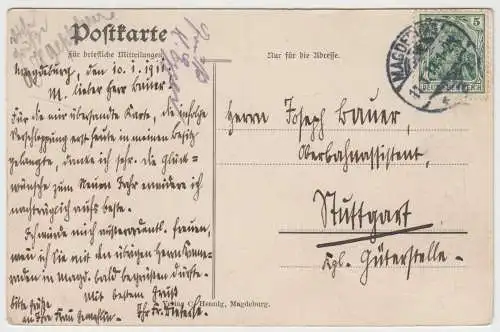 Postkarte
Für briefliche Mitteilungen
Nur für die Adresse.
Magdeburg, den 10.1.191
M. lieber Herr Bauer!
Für die mir übersandte Karte, die infolge
Verschleppung erst heute in meinen Besitz
gelangte, danke ich sehr. Die Glück-
wünsche zum Neuen Jahr erwidere ich
nachträglich aufs beste.
Ich würde mich außerordentl. freuen,
wenn ich Sie mit den übrigen Herrn Kame-
raden in Magd. bald begrüßen dürfte.
Mit bestem Gruß
Ihr
bitte Grüße
an Ihre Frau Gemahlin
Herrn Joseph Bauer,
Oberbahnassistent,
Stuttgart
Kgl. Güterstelle.
MAGDEBURG
5
DEUTSCHES REICH
Verlag C. Hennig, Magdeburg.